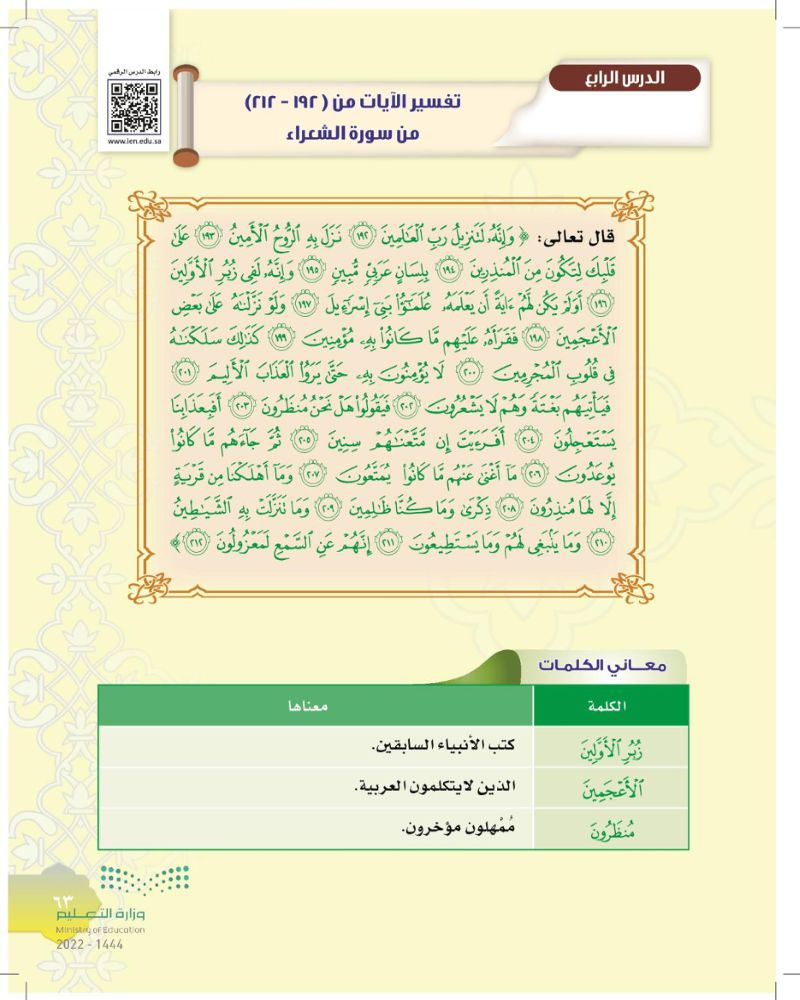 رابط الدرس الرقمي
www.ien.edu.sa
الدرس الرابع
تفسير الآيات من (١٩٢ - ٢١٢)
من سورة الشعراء
قال تعالى: ﴿ وَإِنَّهُۥ لَتَنزِيلُ رَبِّ ٱلْعَٰلَمِينَ ١٩٢ نَزَلَ بِهِ ٱلرُّوحُ ٱلْأَمِينُ ١٩٣ عَلَىٰ
قَلْبِكَ لِتَكُونَ مِنَ ٱلْمُنذِرِينَ ١٩٤ بِلِسَانٍ عَرَبِيٍّ مُّبِينٍ ١٩٥ وَإِنَّهُۥ لَفِى زُبُرِ ٱلْأَوَّلِينَ
١٩٦ أَوَلَمْ يَكُن لَّهُمْ ءَايَةً أَن يَعْلَمَهُۥ عُلَمَٰٓؤُا۟ بَنِىٓ إِسْرَٰٓءِيلَ ١٩٧ وَلَوْ نَزَّلْنَٰهُ عَلَىٰ بَعْضِ
ٱلْأَعْجَمِينَ ١٩٨ فَقَرَأَهُۥ عَلَيْهِم مَّا كَانُوا۟ بِهِۦ مُؤْمِنِينَ ١٩٩ كَذَٰلِكَ سَلَكْنَٰهُ
فِى قُلُوبِ ٱلْمُجْرِمِينَ ٢٠٠ لَا يُؤْمِنُونَ بِهِۦ حَتَّىٰ يَرَوُا۟ ٱلْعَذَابَ ٱلْأَلِيمَ ٢٠١
فَيَأْتِيَهُم بَغْتَةً وَهُمْ لَا يَشْعُرُونَ ٢٠٢ فَيَقُولُوا۟ هَلْ نَحْنُ مُنظَرُونَ ٢٠٣ أَفَبِعَذَابِنَا
يَسْتَعْجِلُونَ ٢٠٤ أَفَرَءَيْتَ إِن مَّتَّعْنَٰهُمْ سِنِينَ ٢٠٥ ثُمَّ جَآءَهُم مَّا كَانُوا۟
يُوعَدُونَ ٢٠٦ مَآ أَغْنَىٰ عَنْهُم مَّا كَانُوا۟ يُمَتَّعُونَ ٢٠٧ وَمَآ أَهْلَكْنَا مِن قَرْيَةٍ
إِلَّا لَهَا مُنذِرُونَ ٢٠٨ ذِكْرَىٰ وَمَا كُنَّا ظَٰلِمِينَ ٢٠٩ وَمَا تَنَزَّلَتْ بِهِ ٱلشَّيَٰطِينُ
٢١٠ وَمَا يَنۢبَغِى لَهُمْ وَمَا يَسْتَطِيعُونَ ٢١١ إِنَّهُمْ عَنِ ٱلسَّمْعِ لَمَعْزُولُونَ ٢١٢ ﴾
معاني الكلمات
الكلمة معناها
زُبُرِ ٱلْأَوَّلِينَ كتب الأنبياء السابقين.
ٱلْأَعْجَمِينَ الذين لايتكلمون العربية.
مُنظَرُونَ مُمْهلون مؤخرون.
٦٣
وزارة التعليم
Ministry of Education
2022 - 1444